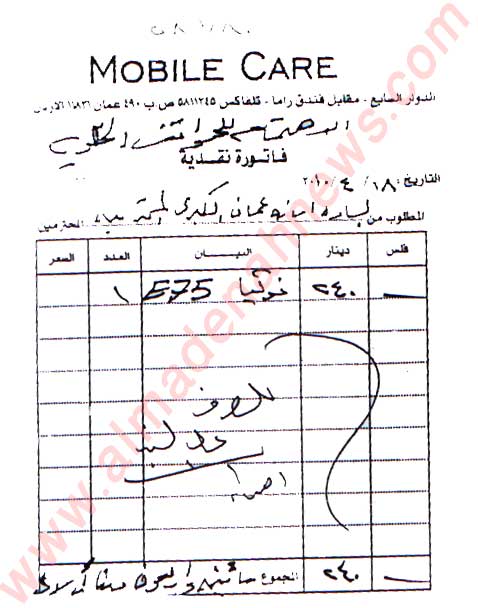 MOBILE CARE
الدوار السابع - مقابل فندق راما - تلفاكس ٥٨١١٢٤٥ ص.ب ٤٩٠ عمان ١١٨٣١ الاردن
فاتورة نقدية
التاريخ: ١٨/ ٤ / ٢٠١٠
المطلوب من السادة امانة عمان الكبرى المحترمين
فلس دينار البيان العدد السعر
٢٤٠ نوكيا E75 ١
٢٤٠ المجموع مائتان واربعون دينار
www.almadenahnews.com